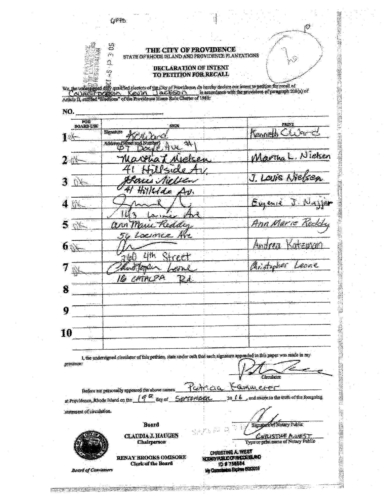 THE CITY OF PROVIDENCE
STATE OF RHODE ISLAND AND PROVIDENCE PLANTATIONS
DECLARATION OF INTENT
TO PETITION FOR RECALL
We, the undersigned duly qualified electors of the City of Providence do hereby declare our intent to petition the recall of
Councilperson Kevin Jackson in accordance with the provisions of paragraph
Article II, entitled "Elections" of the Providence Home Rule Charter of 1980:
NO.
FOR BOARD USE SIGN PRINT
1 Signature Kenneth C Ward
Address (Street and Number) 67 Doyle Ave
2 Martha L Nielsen Martha L. Nielsen
41 Hillside Av.
3 J. Louis Nielsen
41 Hillside Av.
4 Eugenia J. Najjar
163 Lorimer Ave
5 Ann Marie Reddy Ann Marie Reddy
56 Lorimer Ave
6 Andrea Katzman
360 4th Street
7 Christopher Leone Christopher Leone
16 CATALPA Rd
8
9
10
I, the undersigned circulator of this petition, state under oath that each signature appended to this paper was made in my
presence:
Circulator
Before me personally appeared the above names Patricia Kammerer
at Providence, Rhode Island on the 19th day of September 2016, and swore to the truth of the foregoing
statement of circulation.
Signature of Notary Public
CHRISTINE A. WEST
Type or print name of Notary Public
Board
CLAUDIA J. HAUGEN
Chairperson
RENAY BROOKS OMISORE
Clerk of the Board
Board of Canvassers
CHRISTINE A. WEST
NOTARY PUBLIC OF RHODE ISLAND